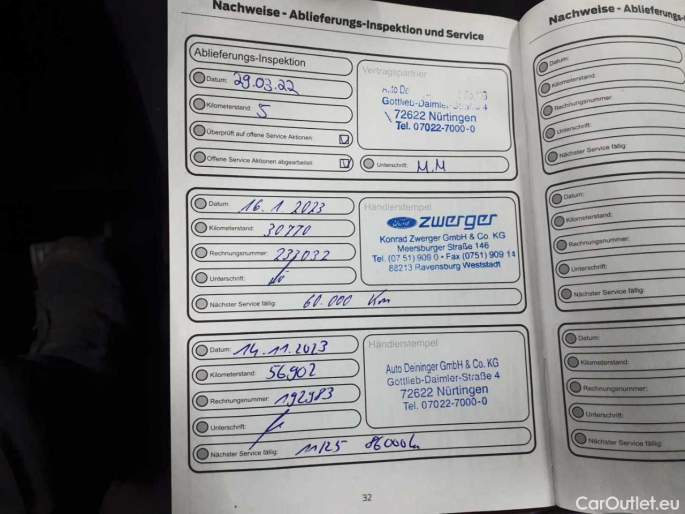 Nachweise - Ablieferungs-Inspektion und Service
Ablieferungs-Inspektion
Datum: 29.03.22
Kilometerstand: 5
Überprüft auf offene Service Aktionen:
Offene Service Aktionen abgearbeitet:
Vertragspartner
Auto
Gottlieb-Daimler-Straße 4
72622 Nürtingen
Tel. 07022-7000-0
Unterschrift: M.M
Datum: 16.1.2023
Kilometerstand: 30770
Rechnungsnummer: 237032
Unterschrift:
Nächster Service fällig: 60.000 Km
Händlerstempel
Ford zwerger
Konrad Zwerger GmbH & Co. KG
Meersburger Straße 146
Tel. (07 51) 909 0 • Fax (0751) 909 14
88213 Ravensburg Weststadt
Datum: 14.11.2023
Kilometerstand: 56902
Rechnungsnummer: 192983
Unterschrift:
Nächster Service fällig: 11/25 86000
Händlerstempel
Auto Deininger GmbH & Co. KG
Gottlieb-Daimler-Straße 4
72622 Nürtingen
Tel. 07022-7000-0
32
Nachweise - Ablieferungs-
Datum:
Kilometerstand:
Rechnungsnummer:
Unterschrift:
Nächster Service fällig:
Datum:
Kilometerstand:
Rechnungsnummer:
Unterschrift:
Nächster Service fällig:
Datum:
Kilometerstand:
Rechnungsnummer:
Unterschrift:
Nächster Service fällig:
CarOutlet.eu